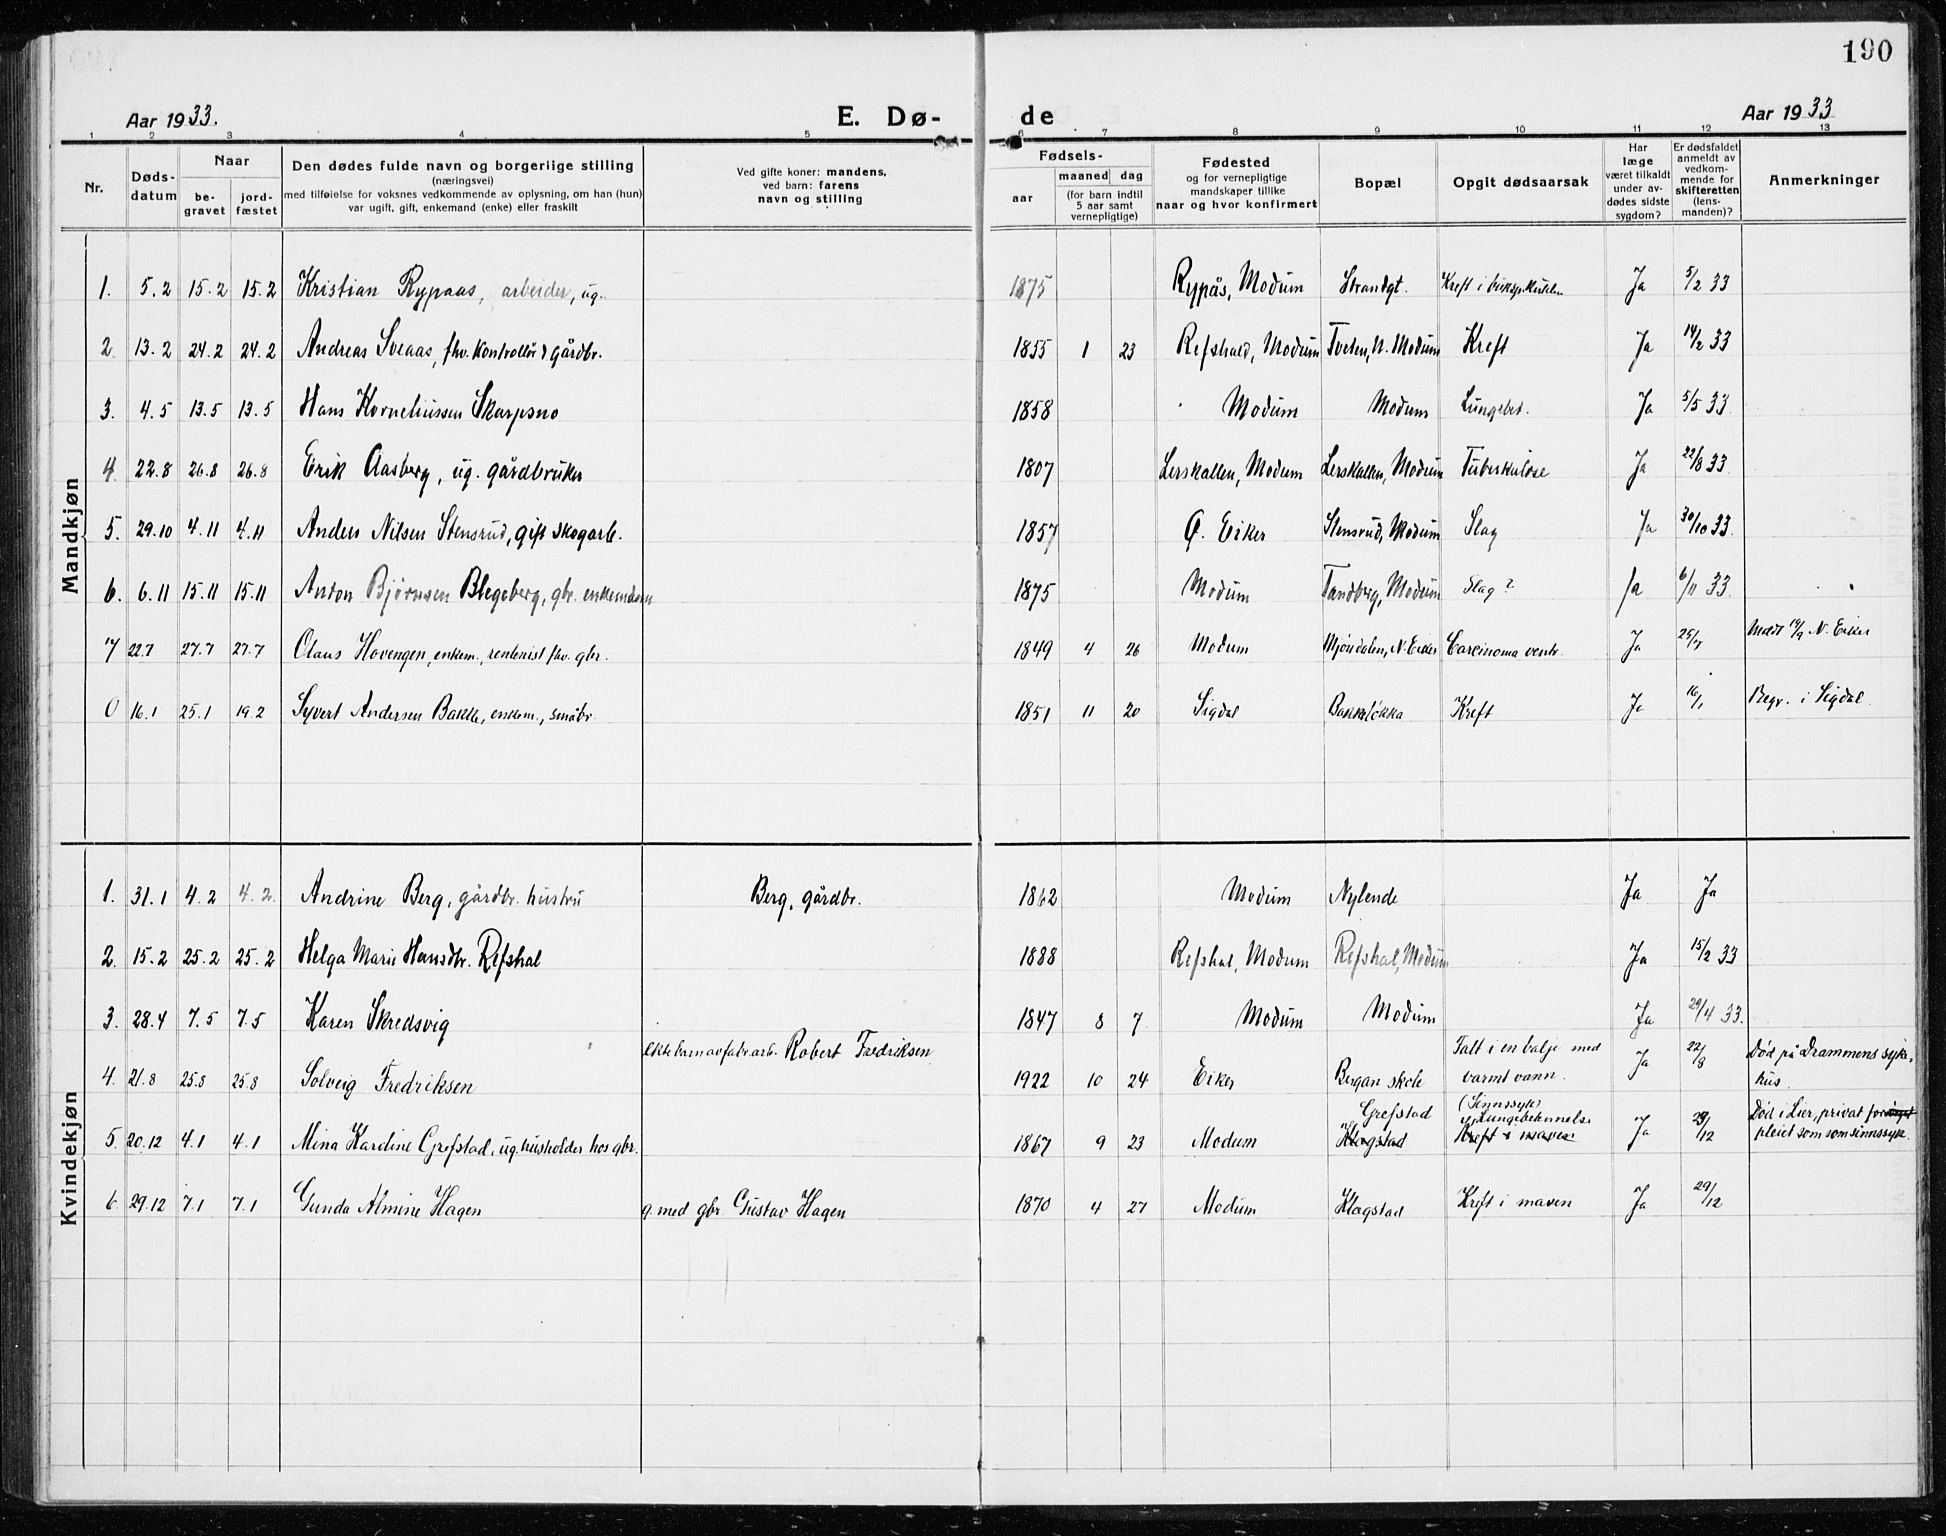 190
Aar 1933.
E. Dø-
de
Aar 1933
1 2 3 4 5 6 7 8 9 10 11 12 13
Nr.
Døds-
datum
Naar
be-
gravet
jord-
fæstet
Den dødes fulde navn og borgerlige stilling
(næringsvei)
med tilføielse for voksnes vedkommende av oplysning, om han (hun)
var ugift, gift, enkemand (enke) eller fraskilt
Ved gifte koner: mandens,
ved barn: farens
navn og stilling
Fødsels-
aar
maaned dag
(for barn indtil
5 aar samt
vernepligtige)
Fødested
og for vernepligtige
mandskaper tillike
naar og hvor konfirmert
Bopæl
Opgit dødsaarsak
Har
læge
været tilkaldt
under av-
dødes sidste
sygdom?
Er dødsfaldet
anmeldt av
vedkom-
mende for
skifteretten
(lens-
manden)?
Anmerkninger
Mandkjøn
1. 5.2 15.2 15.2 Kristian Rypaas, arbeider, ug. 1875 Rypås, Modum Strandgt. Kreft i Ja 5/2 33
2. 13.2 24.2 24.2 Andreas Sveaas, fhv. kontrollør & gårdbr. 1855 1 23 Refshald, Modum Tveten, N. Modum Kreft Ja 14/2 33
3. 4.5 13.5 13.5 Hans Korneliussen Skarpsno 1858 Modum Modum Lungebet. Ja 5/5 33
4. 22.8 26.8 26.8 Erik Aasberg, ug. gårdbruker 1807 Lerskallen, Modum Lerskallen, Modum Tuberkulose Ja 22/8 33
5. 29.10 4.11 4.11 Anders Nilsen Stensrud, gift skogarb. 1857 Ø. Eiker Stensrud, Modum Slag Ja 30/10 33
6. 6.11 15.11 15.11 Anton Bjørnsen Blegeberg, gbr. enkemann 1875 Modum Tandberg, Modum Slag? Ja 6/11 33
7 22.7 27.7 27.7 Olaus Hovengen, enkem., rentenist fhv. gbr. 1849 4 26 Modum Mjøndalen, N. Eiker Carcinoma ventr. Ja 25/7 Medt 14/9 N. Eiker
0 16.1 25.1 19.2 Syvert Andersen Bakke, enkem., småbr. 1851 11 20 Sigdal Bakkeløkka Kreft Ja 16/1 Begr. i Sigdal
Kvindekjøn
1. 31.1 4.2 4.2 Andrine Berg, gårdbr. hustru Berg, gårdbr. 1862 Modum Nylende Ja Ja
2. 15.2 25.2 25.2 Helga Marie Hansdtr. Refshal 1888 Refshal, Modum Refshal, Modum Ja 15/2 33
3. 28.4 7.5 7.5 Karen Skredsvig 1847 8 7 Modum Modum Ja 29/4 33.
ekte barn av fabr.arb. Robert Fredriksen
Falt i en balje med
4. 21.8 25.8 25.8 Solveig Fredriksen 1922 10 24 Eiker Bergan skole varmt vann. Ja 22/8 Død på Drammens syke-
hus.
Grefstad (Sinnssyk)
Lungebetennelse
5. 20.12 4.1 4.1 Mina Karoline Grefstad, ug. husholder hos gbr. 1867 9 23 Modum Klogstad Kreft i maven Ja 29/12 Død i Lier, privat
pleiet som som sinnssyk.
6. 29.12 7.1 7.1 Gunda Almine Hagen g. med gbr. Gustav Hagen 1870 4 27 Modum Klogstad Kreft i maven Ja 29/12